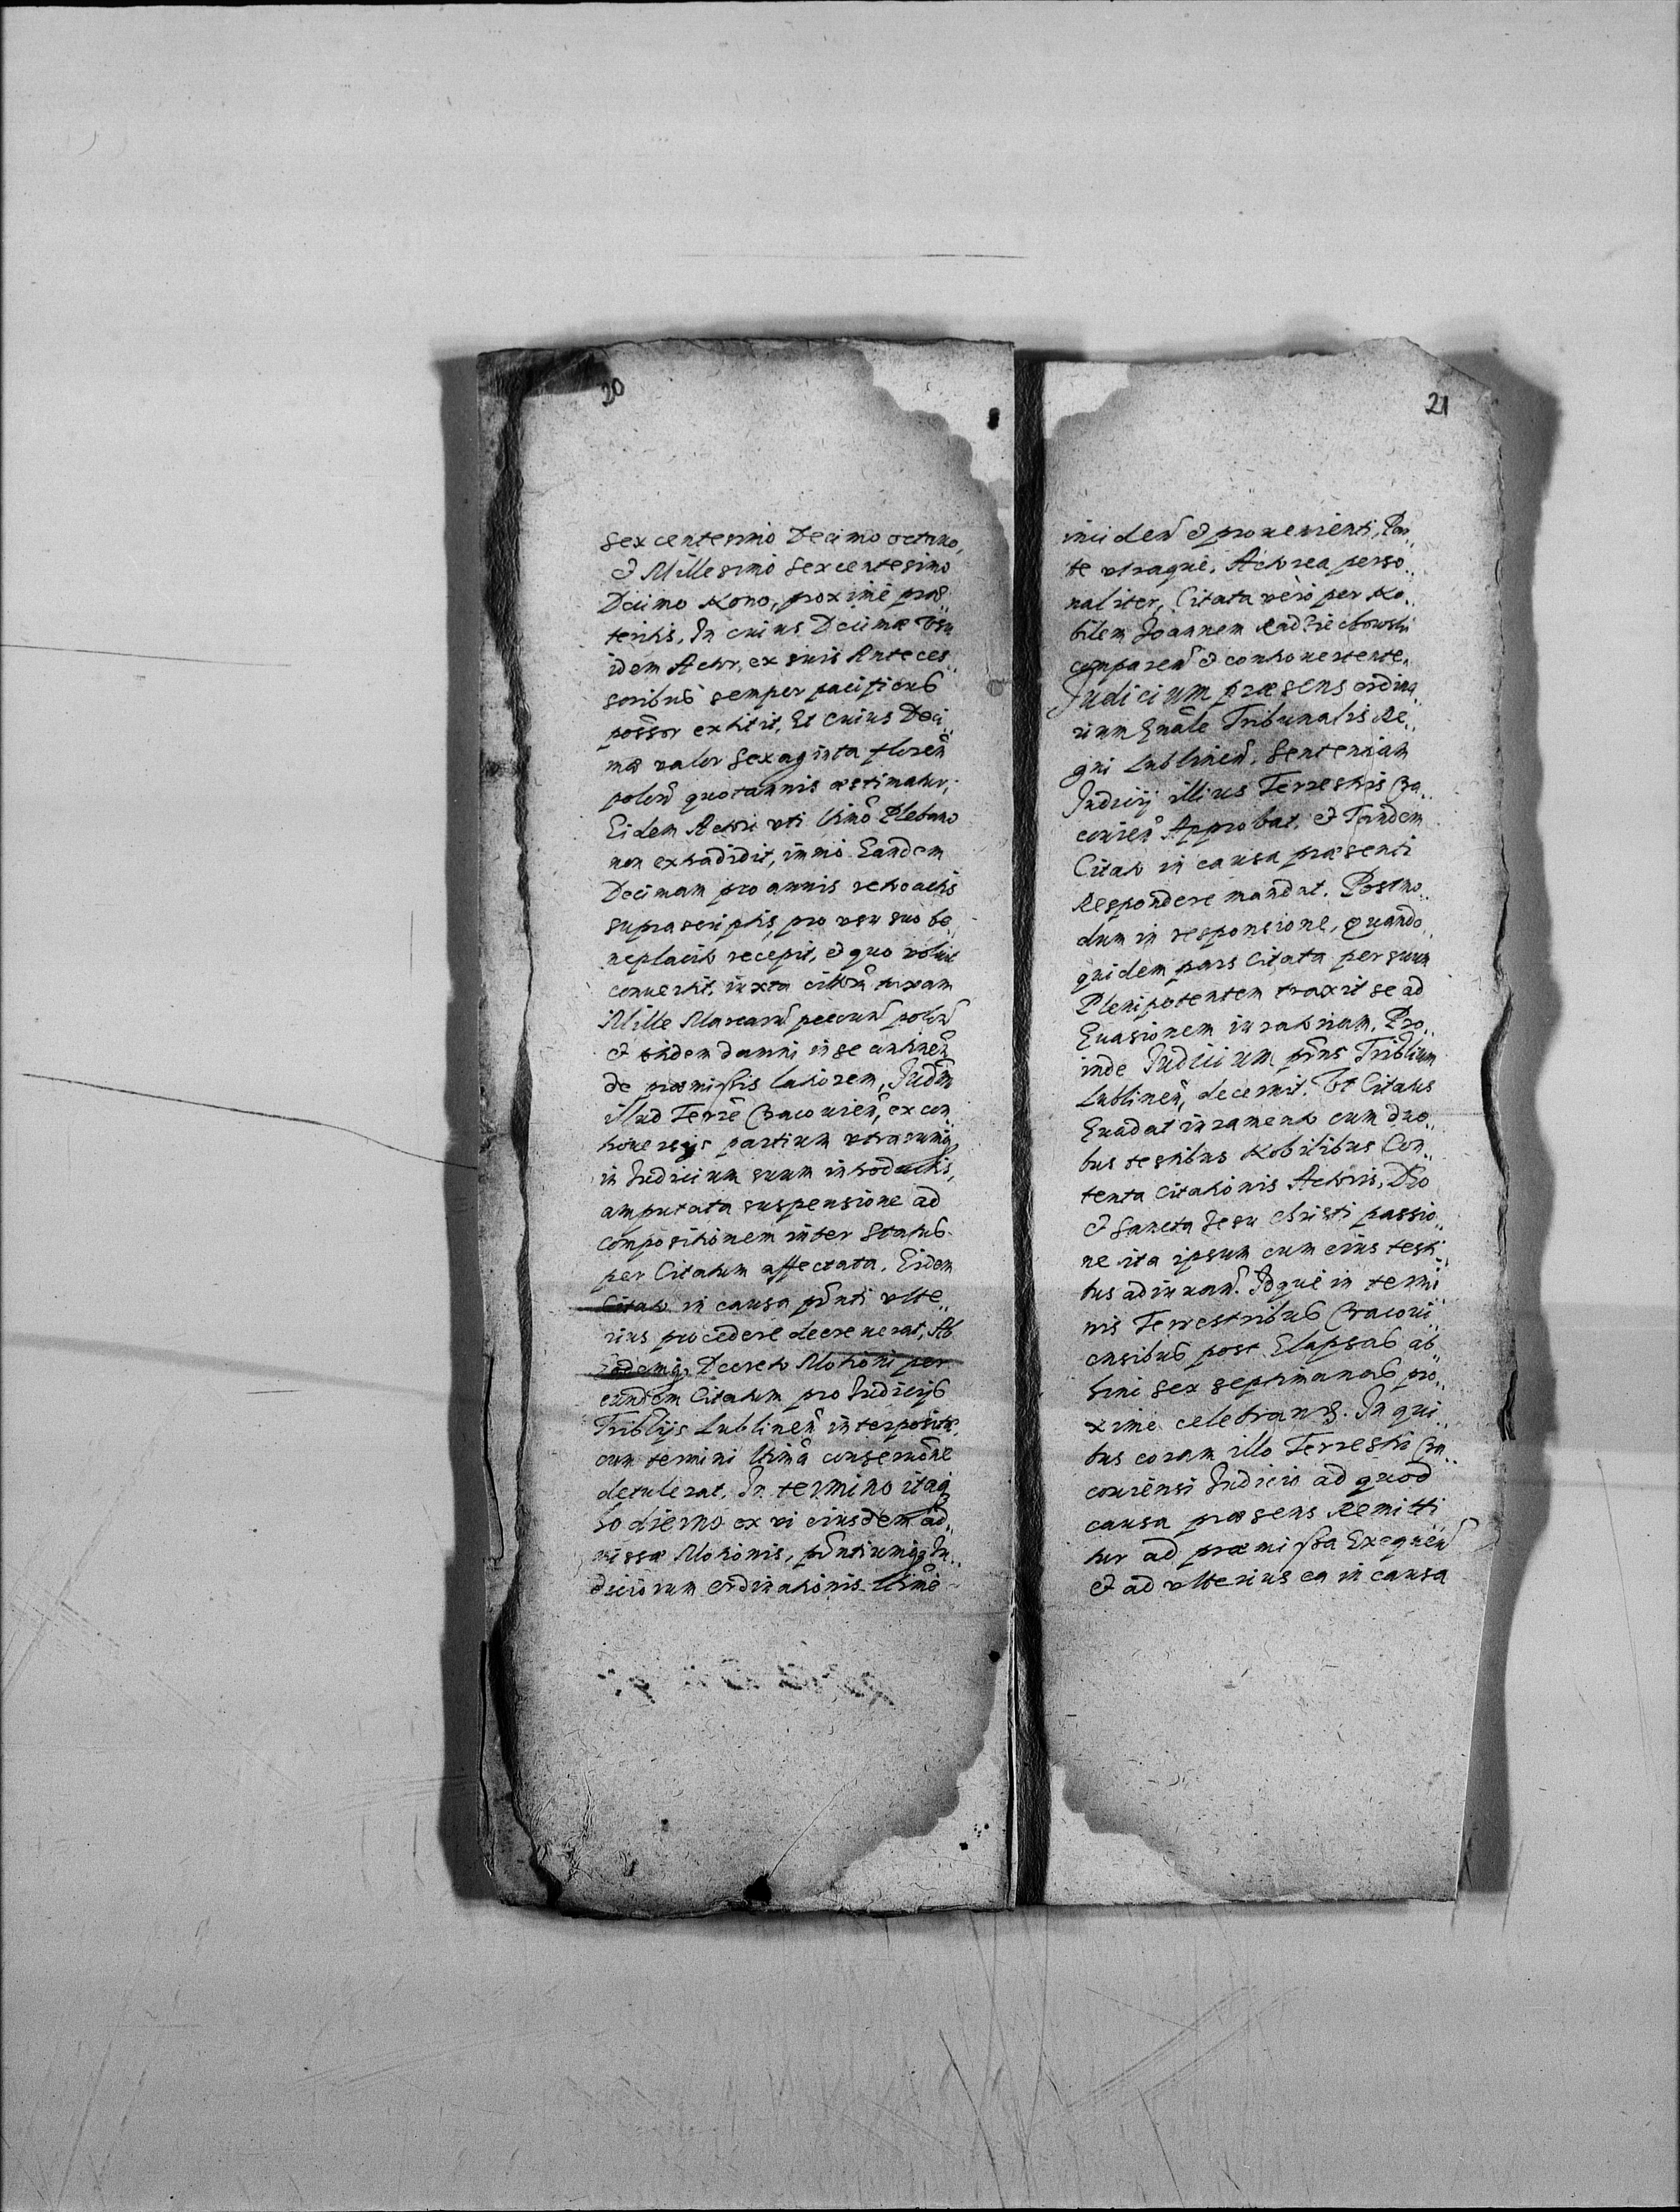 20
sexcentesimo Decimo octauo,
& Millesimo sexcentesimo
Decimo Nono, proximè præ„
teritis, In cuius Decimæ vsu
idem Actor, ex suis Anteces„
soribus semper pacificus
posśor extitit, Et cuius Deci„
mæ valor sexaginta floren̄
polon̄ quotannis æstimatur,
Eidem Actori vti ltimo Plebano
non extradidit, immò Eandem
Decimam pro annis retroactis
suprascriptis, pro vsu suo be„
neplacito recepit, & quo voluit
conuertit, iuxta
Mille Marcarum pecun̄ polon̄
& tndem damni in se continen̄
de præmissis latiorem, Judm̄
illud Terrē Cracouien̄, ex con„
trouersijs partium vtrarumq3
in Judicium suum introductis,
amputata suspensione ad
compositionem inter status
per Citatum affectata. Eidem
Citato in causa pn̄ti vlte„
rius procedere decreuerat, Ab
Eodemq3 Decreto Motioni per
eundem Citatum pro Judicijs
Triblijs Lublinen̄ interpositæ,
cum termini ltima conseruōne
detulerat. In termino itaq3
hodierno ex vi eiusdem ad„
missæ Motionis, pn̄tiumq3 Ju„
diciorum ordinationis ltimè
21
inciden̄ & prouenienti, Par„
te vtraque, Actorea perso„
naliter, Citata verò per No„
bilem Joannem Radziechowski
comparen̄ & controuertente.
Judicium præsens ordina„
rium Gnāle Tribunalis Re„
gni Lublinen̄, sententiam
Judicij illius Terrestris Cra„
couien̄ Approbat, & Tandem
Citato in causa præsenti
Respondere mandat. Postmo„
dum in responsione, Quando„
quidem pars Citata per suum
Plenipotentem traxit se ad
Euasionem iuratoriam. Pro„
inde Judicium pn̄s Triblium
Lublinen̄, decernit. Vt Citatus
Euadat iuramento cum duo„
bus testibus Nobilibus Con„
tenta Citationis Actoris, Deo
& Sancta Jesu Christi passio„
ne ita ipsum cum eius testi„
bus adiuuan̄. Idque in termi„
nis Terrestribus Cracoui„
ensibus post Elapsas ab„
hinc sex septimanas pro„
ximè celebrand. In qui„
bus coram illo Terrestri Cra„
couiensi Judicio ad quod
causa præsens Remitti„
tur ad præmissa Exequen̄
& ad vlterius ea in causa